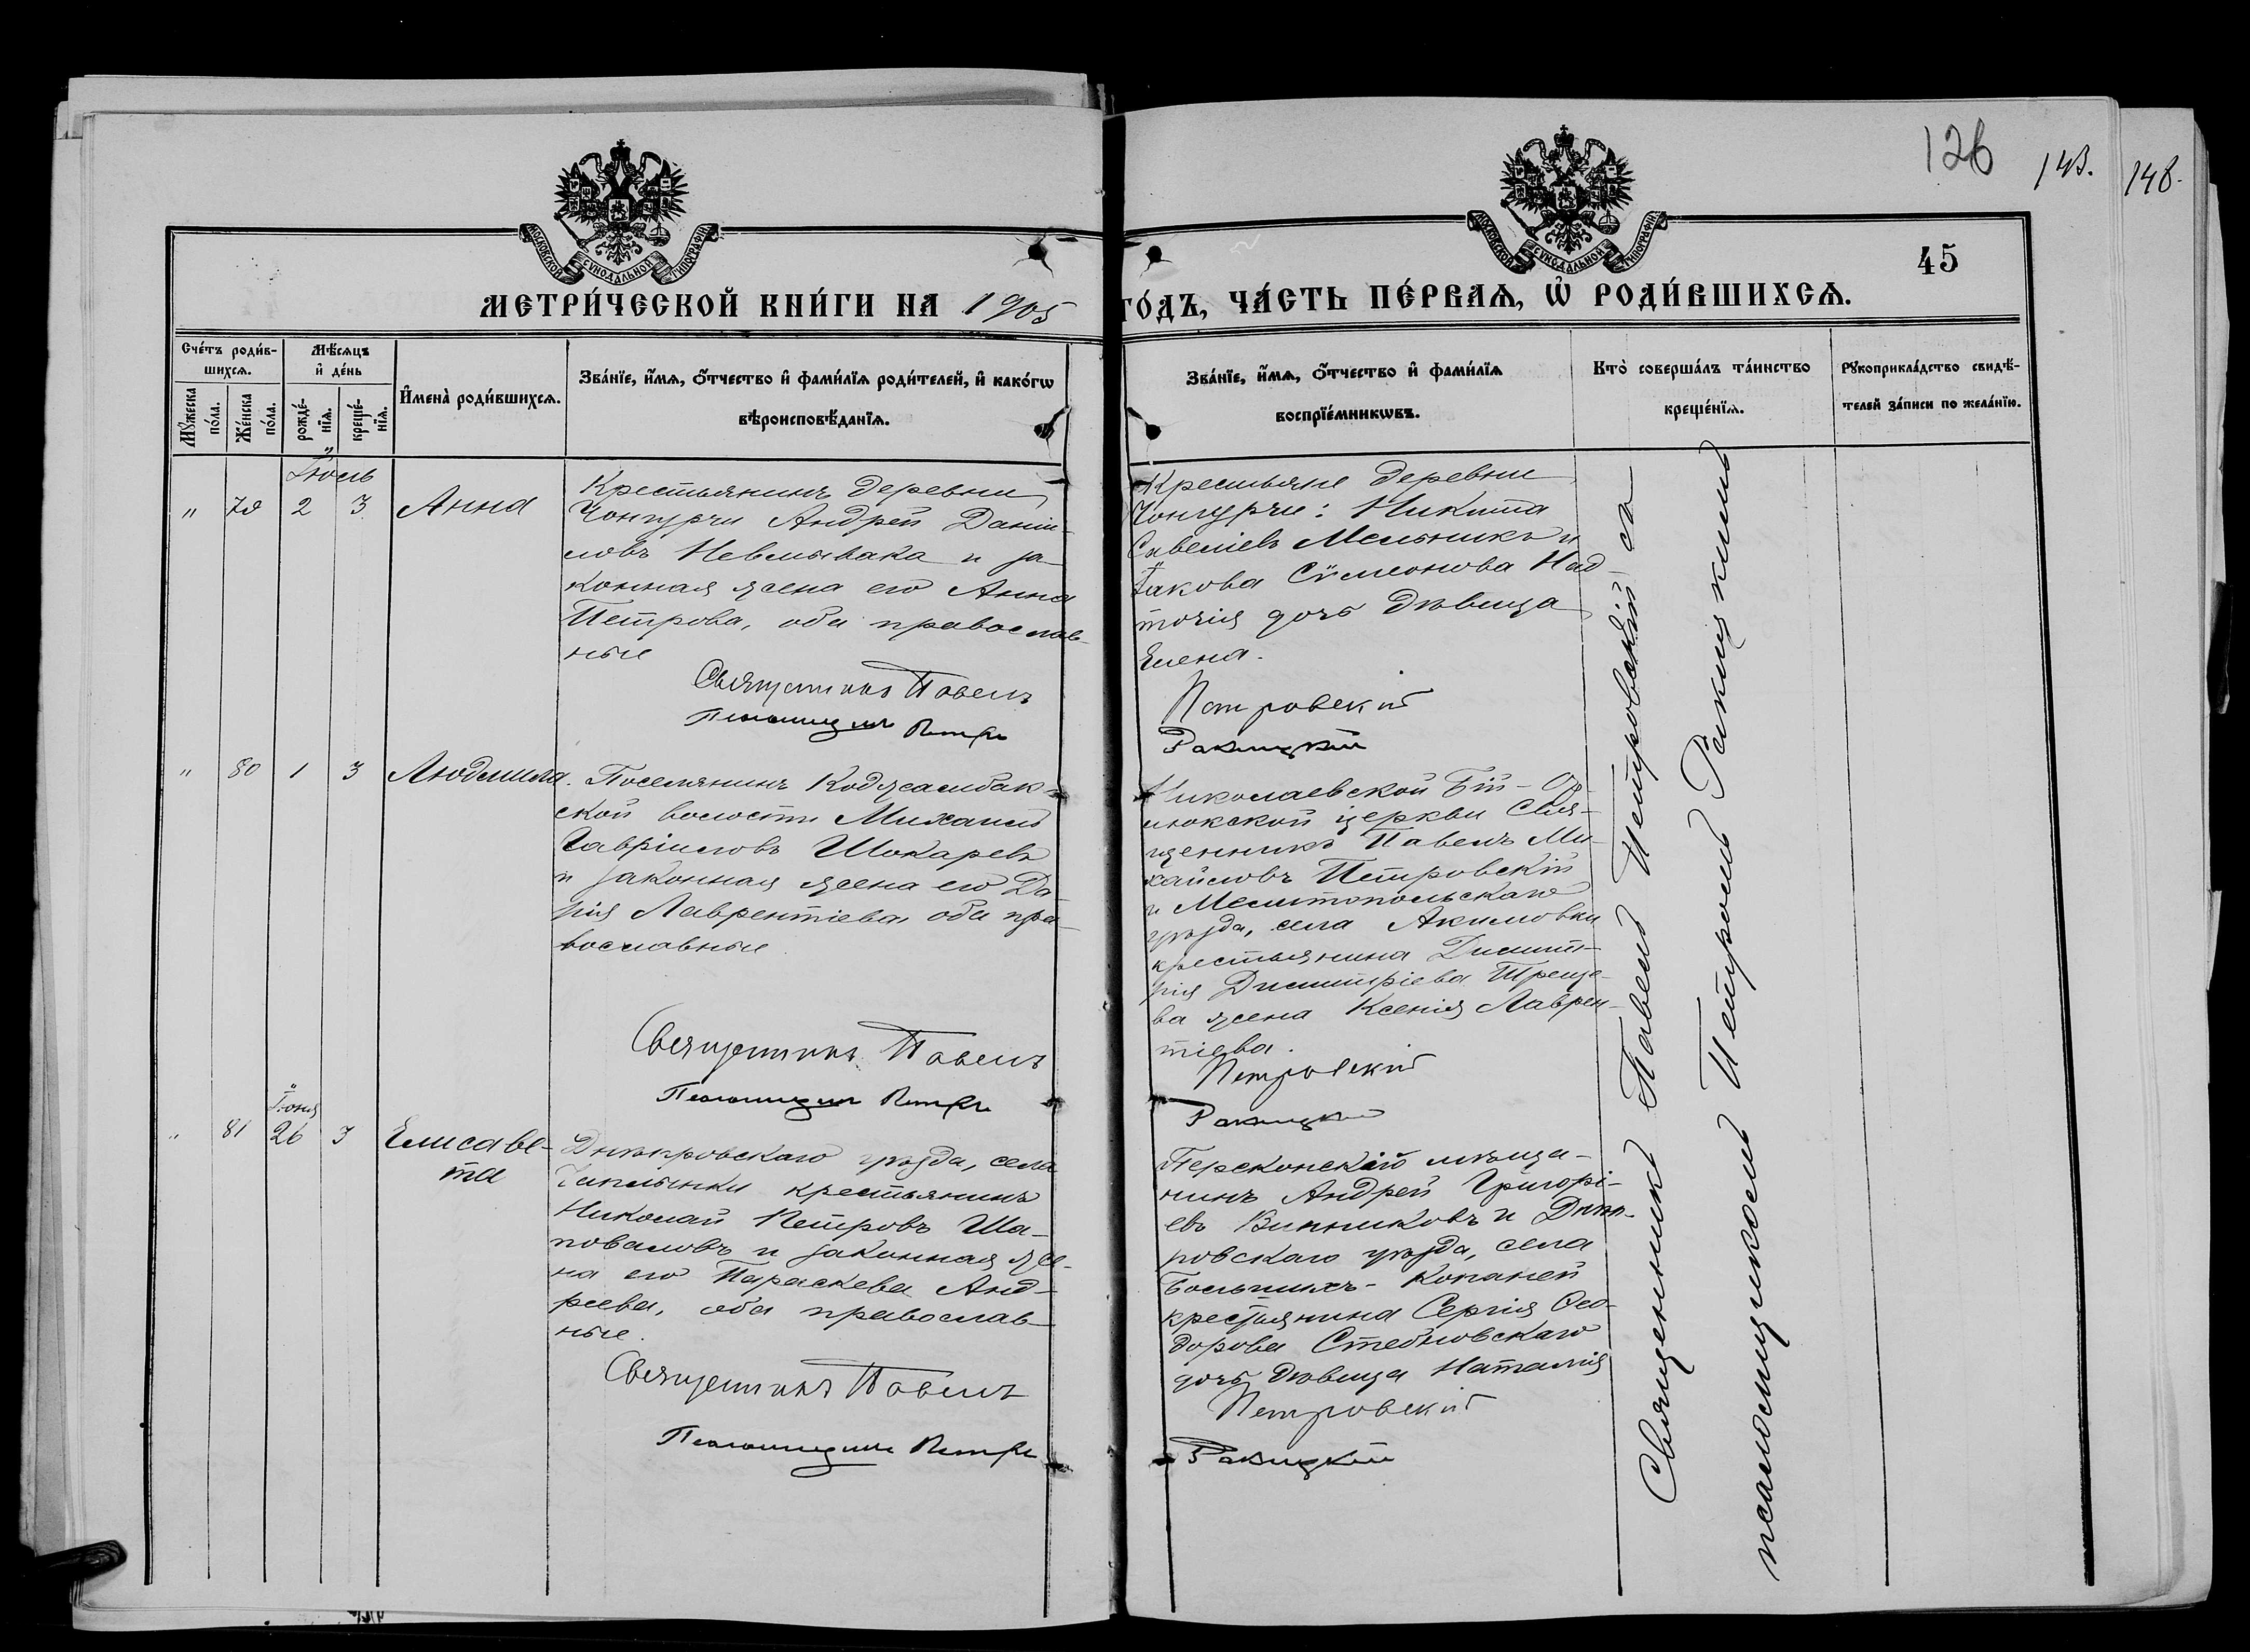 126
143.
148.
МОСКОВСКОЙ СѴНОДАЛЬНОЙ ТИПОГРАФІИ
МОСКОВСКОЙ СѴНОДАЛЬНОЙ ТИПОГРАФІИ
45
МЕТРИ́ЧЕСКОЙ КНИ́ГИ НА 1905
ГО́ДЪ, ЧА́СТЬ ПЕ́РВАѦ, Ѡ҆ РОДИ́ВШИХСѦ.
Сче́тъ роди́в-
шихсѧ.
Мꙋ́жеска
по́ла.
Же́нска
по́ла.
Мѣ́сѧцъ
и҆ де́нь
рожде́-
нїѧ.
креще́-
нїѧ.
И҆мена̀ роди́вшихсѧ.
Зва́нїе, и҆́мѧ, ѻ҆́тчество и҆ фами́лїѧ роди́телей, и҆ како́гѡ
вѣроисповѣ́данїѧ.
Зва́нїе, и҆́мѧ, ѻ҆́тчество и҆ фами́лїѧ
воспрїе́мникѡвъ.
Кто̀ соверша́лъ та́инство
креще́нїѧ.
Рꙋкоприкла́дство свидѣ́-
телей за́писи по жела́нїю.
Іюль
" 79 2 3 Анна
Крестьянинъ деревни
Чонгурчи Андрей Даніи-
ловъ Невмывака и за-
конная жена его Анна
Петрова, оба православ-
ные
Священникъ Павелъ
Псаломщикъ Петръ
Крестьяне деревни
Чонгурчи: Никита
Савеліевъ Мельникъ и
Іакова Сѵмеонова Над-
точія дочь дѣвица
Елена.
Петровскій
Ракицкій
" 80 1 3 Людмила.
Поселянинъ Коджамбак-
ской волости Михаилъ
Гавріиловъ Шокаревъ
и законная жена его Да-
рія Лаврентіева, оба пра-
вославные
Священникъ Павелъ
Псаломщикъ Петръ
Николаевской Бій-Ор-
люкской церкви Свя-
щенникъ Павелъ Ми-
хайловъ Петровскій
и Мелитопольскаго
уѣзда, села Акимовки
крестьянина Димит-
рія Димитріева Треще-
ва жена Ксенія Лаврен-
тіева.
Петровскій
Ракицкій
Іюня
" 81 26 3 Елисаве-
та
Днѣпровскаго уѣзда, села
Чаплынки крестьянинъ
Николай Петровъ Ша-
поваловъ и законная же-
на его Параскева Анд-
реева, оба православ-
ные.
Священникъ Павелъ
Псаломщикъ Петръ
Перекопскій мѣща-
нинъ Андрей Григорі-
евъ Винниковъ и Днѣп-
ровскаго уѣзда, села
Большихъ-Копаней
крестьянина Сергія Ѳео-
дорова Стебловскаго
дочь дѣвица Наталія
Петровскій
Ракицкій
Священникъ Павелъ Петровскій съ
псаломщикомъ Петромъ Ракицкимъ